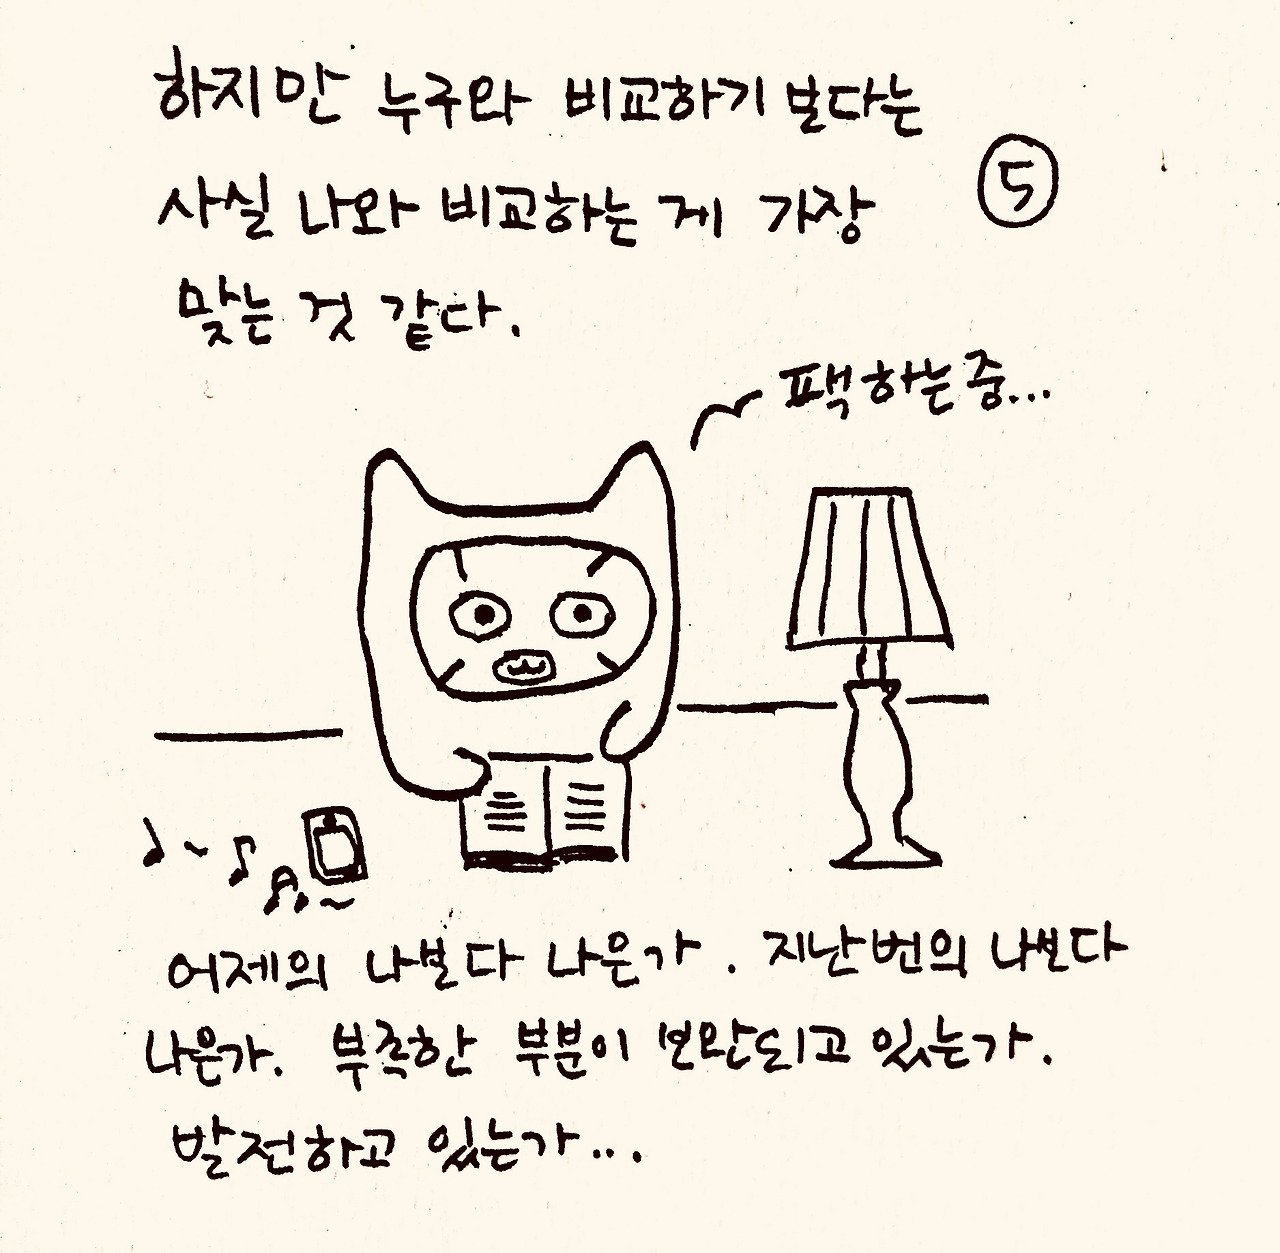 하지만 누구와 비교하기 보다는
⑤
사실 나와 비교하는 게 가장
맞는 것 같다.
팩 하는 중...
어제의 나보다 나은가. 지난번의 나보다
나은가. 부족한 부분이 보완되고 있는가.
발전하고 있는가...